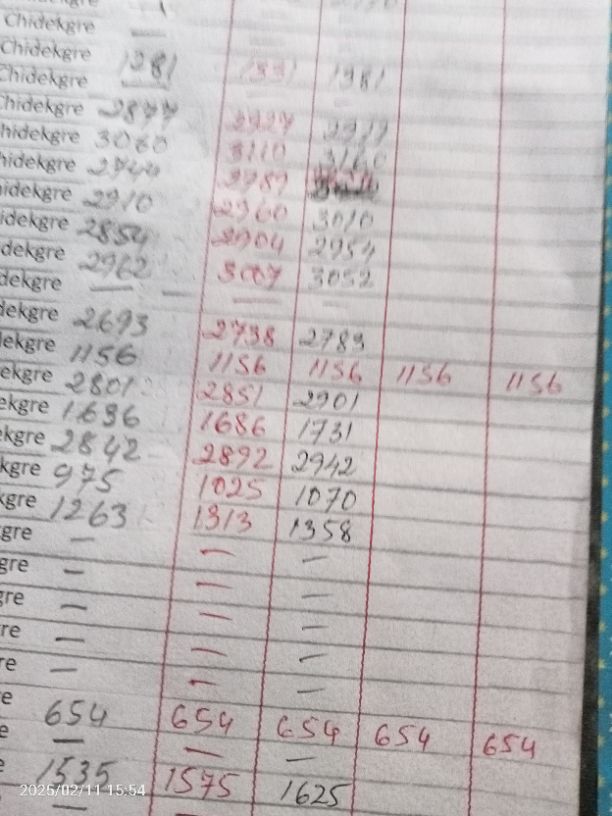 Chidekgre —
Chidekgre 1281 1331 1381
Chidekgre —
Chidekgre 2877 2927 2977
Chidekgre 3060 3110 3160
hidekgre 2744 2789
idekgre 2910 2960 3010
idekgre 2854 2904 2954
dekgre 2962 3007 3052
dekgre — — —
dekgre 2693 2738 2783
ekgre 1156 1156 1156 1156 1156
ekgre 2801 2851 2901
ekgre 1636 1686 1731
ekgre 2842 2892 2942
kgre 975 1025 1070
kgre 1263 1313 1358
gre — — —
gre — — —
gre — — —
re — — —
re — — —
e 654 654 654 654 654
e — — —
e 1535 1575 1625
—
2025/02/11 15:54